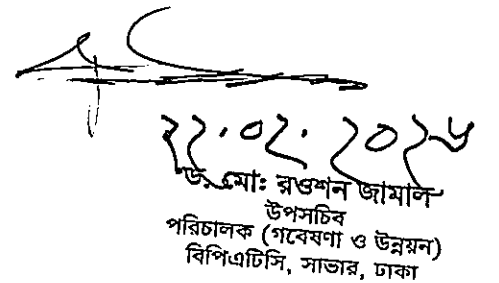 ২২.০২.২০২৬
ড. মোঃ রওশন জামাল
উপসচিব
পরিচালক (গবেষণা ও উন্নয়ন)
বিপিএটিসি, সাভার, ঢাকা